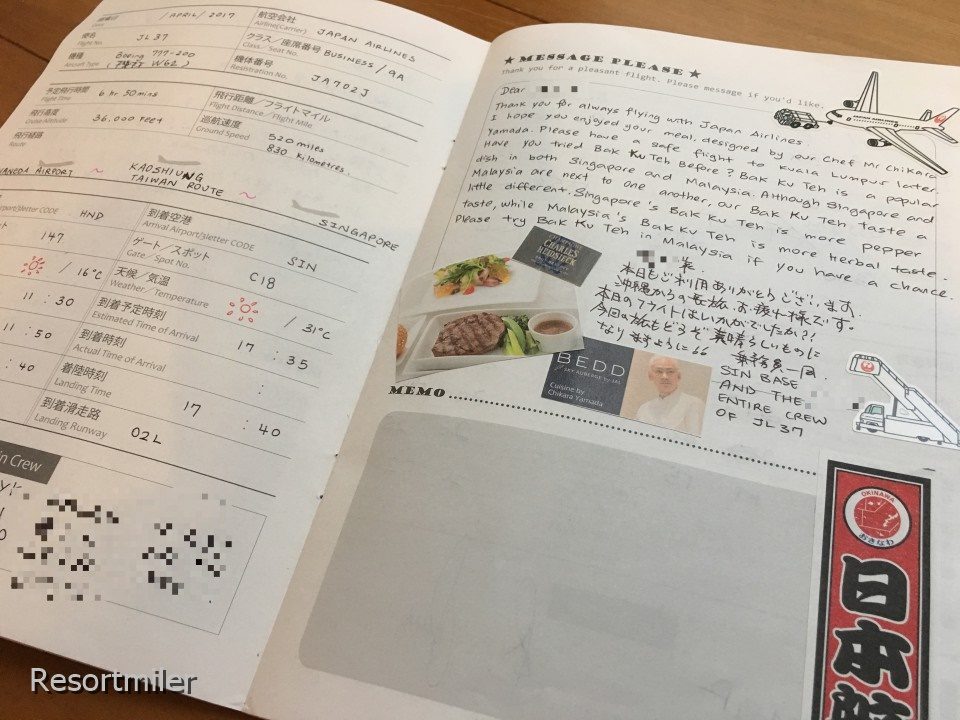 /APRIL/2017
便名
Flight No.
JL 37
機種
Aircraft Type
Boeing 777-200
W62)
航空会社
Airline(Carrier)
JAPAN AIRLINES
クラス/座席番号
Class・Seat No.
BUSINESS / 9A
機体番号
Resistration No.
JA702J
予定飛行時間
Flight Time
6 hr 50mins
飛行高度
Cruise Altitude
36,000 FEET
飛行経路
Route
飛行距離/フライトマイル
Flight Distance / Flight Mile
巡航速度
Ground Speed
520 miles
830 Kilometres.
HANEDA AIRPORT ~ KAOSHIUNG
TAIWAN ROUTE ~ SINGAPORE
Airport/3letter CODE
HND
到着空港
Arrival Airport/3letter CODE
SIN
147
ゲート/スポット
Gate / Spot No.
C18
/ 16°C
天候/気温
Weather／Temperature
/ 31°C
11 : 30
到着予定時刻
Estimated Time of Arrival
17 : 35
11 : 50
到着時刻
Actual Time of Arrival
:
: 40
着陸時刻
Landing Time
17 : 40
到着滑走路
Landing Runway
02L
in Crew
★ MESSAGE PLEASE ★
Thank you for a pleasant flight. Please message if you'd like.
Dear
Thank you for always flying with Japan Airlines
I hope you enjoyed your meal, designed by our Chef Mr Chikara
Yamada. Please have a safe flight to Kuala Lumpur later.
Have you tried Bak Ku Teh Before? Bak Ku Teh is a popular
dish in both Singapore and Malaysia. Although Singapore and
Malaysia are next to one another, our Bak Ku Teh taste a
little different. Singapore's Bak Ku Teh is more pepper
taste, while Malaysia's Bak Ku Teh is more Herbal taste.
Please try Bak Ku Teh in Malaysia if you have a chance.
CHAMPAGNE
CHARLES
HEIDSIECK
様
本日もご利用ありがとうございます。
沖縄からの長旅、お疲れ様です。
本日のフライトはいかがでしたか?!
今回の旅もどうぞ素晴らしいものに
なりますように
乗務員一同.
SIN BASE
AND THE
ENTIRE CREW
OF JL37
BEDD
SKY AUBERGE by JAL
Cuisine by
Chikara Yamada
MEMO
OKINAWA
おきなわ
日本
Resortmiler